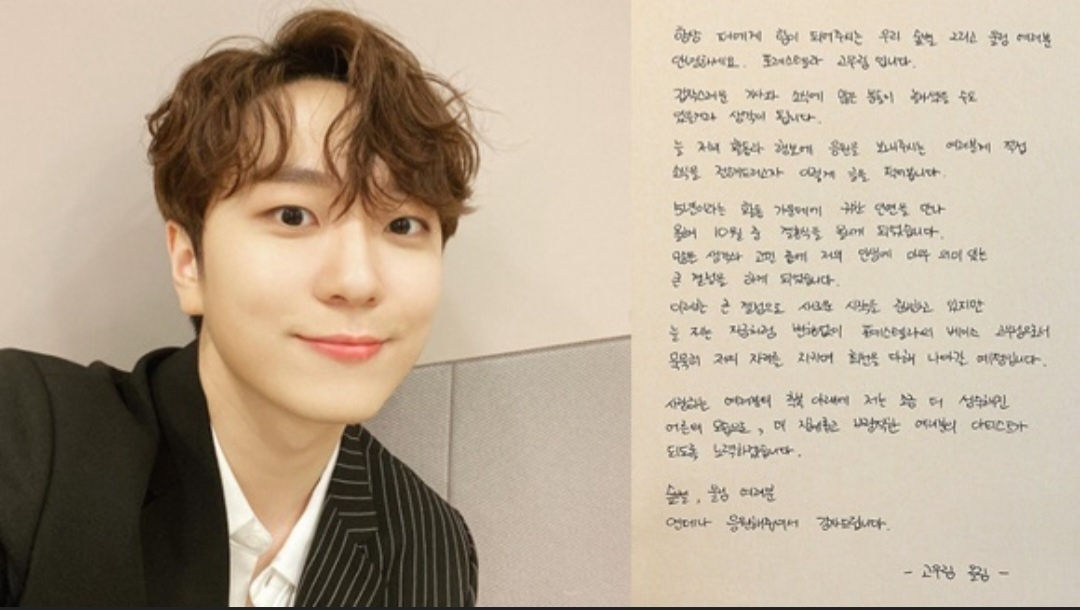 항상 저에게 힘이 되어주시는 우리 숲별 그리고 울림 여러분
안녕하세요. 포레스텔라 고우림입니다.
갑작스러운 기사와 소식에 많은 분들이 놀라셨을 수도
있을거라 생각이 됩니다.
늘 저의 활동과 행보에 응원을 보내주시는 여러분께 직접
소식을 전해드리고자 이렇게 글을 적어봅니다.
활동 가운데에 귀한 인연을 만나
올해 10월 중 결혼식을 올리게 되었습니다.
많은 생각과 고민 중에 저의 인생에 아주 의미 있는
큰 결정을 하게 되었습니다.
이러한 큰 결정으로 새로운 시작을 준비하고 있지만
늘 지금처럼 변함없이 포레스텔라에서 베이스 고우림으로서
묵묵히 저의 자리를 지키며 최선을 다해 나아갈 예정입니다.
사랑하는 여러분의 축복 아래에 저는 조금 더 성숙해진
어른의 모습으로, 더 여러분의 아티스트가
되도록 노력하겠습니다.
숲별, 울림 여러분
언제나 응원해주셔서 감사드립니다.
- 고우림 올림 -